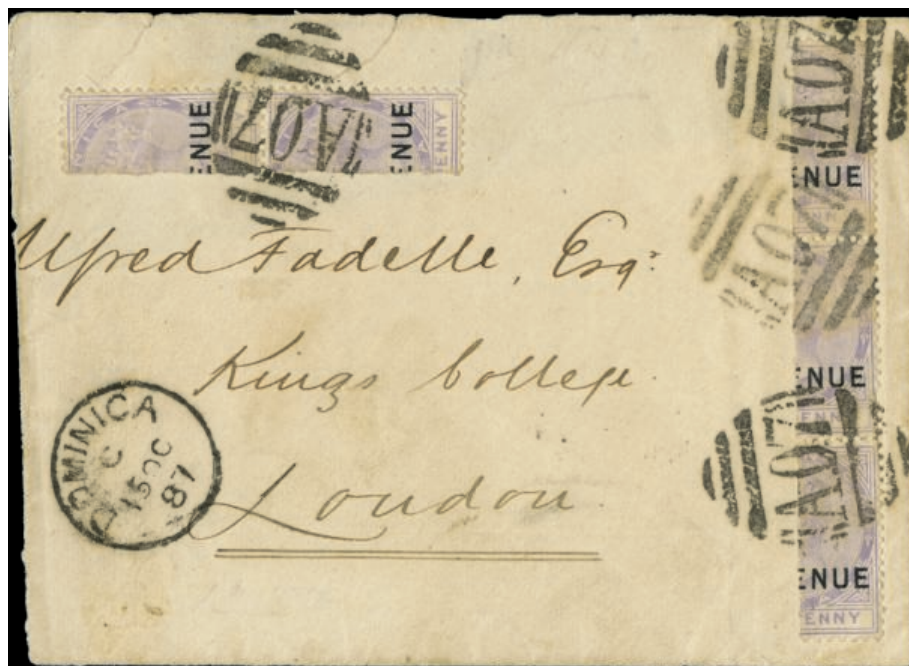 A07
ENUE
ENUE
ENNY
A07
ENUE
A07
ENUE
ENNY
A07
ENUE
ENNY
Alfred Fadelle, Esqr:
Kings College.
London
DOMINICA
C
15 OC
87